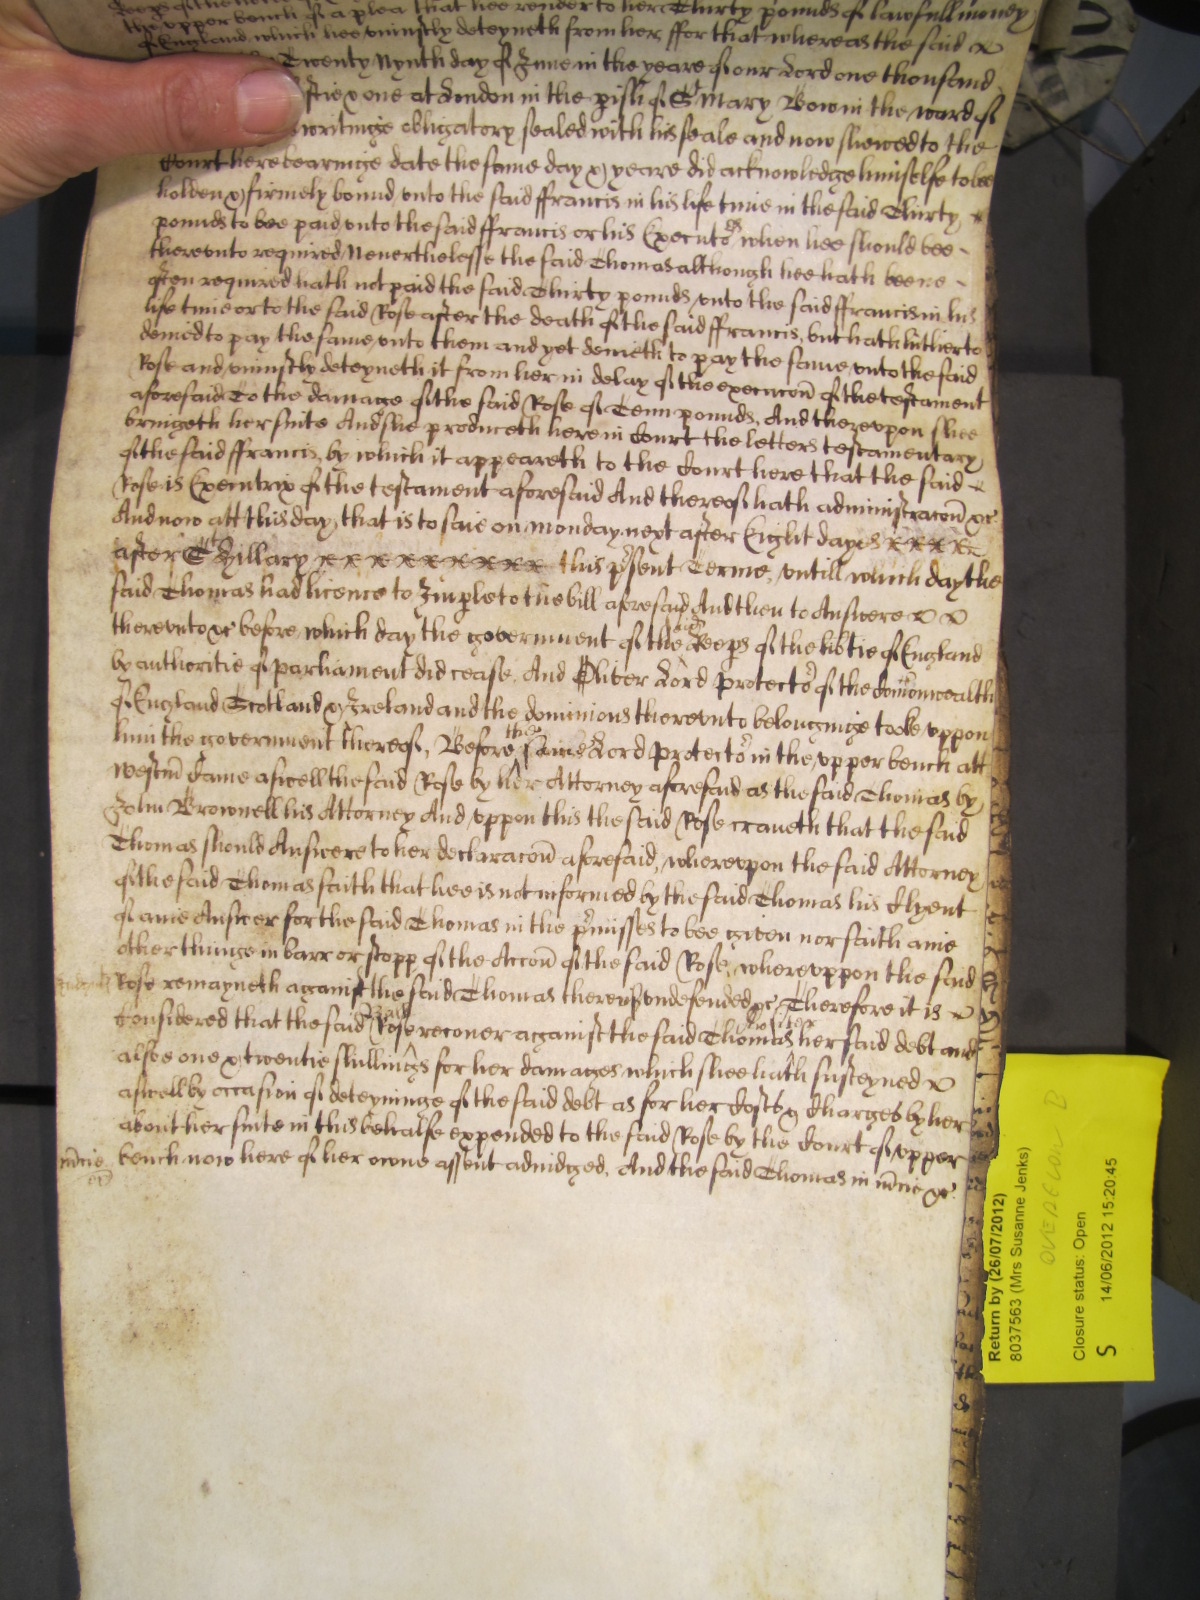 the upper bench of a plea that hee render to her Thirty pounds of lawfull money
of England which hee uniustly deteyneth from her ffor that whereas the said
Twenty Nynth day of June in the yeare of our Lord one thousand
ftie & one at London in the pish of St Mary Bow in the ward of
writinge obligatory sealed with his seale and now shewed to the
Court here bearinge date the same day & yeare did acknowledge himselfe to bee
holden & firmely bound unto the said ffrancis in his life time in the said Thirty
pounds to bee paid unto the said ffrancis or his Executors when hee should bee
thereunto required Neverthelesse the said Thomas although hee hath beene
often required hath not paid the said Thirty pounds unto the said ffrancis in his
life time or to the said Rose after the death of the said ffrancis, but hath hitherto
denied to pay the same unto them and yet denieth to pay the same unto the said
Rose and uniustly deteyneth it from her in delay of the execucon of the testament
aforesaid To the damage of the said Rose of Tenn pounds, And thereupon shee
bringeth her suite And shee produceth here in Court the letters testamentary
of the said ffrancis, by which it appeareth to the Court here that the said
Rose is Executrix of the testament aforesaid And thereof hath administracon &c
And now att this day, that is to saie on monday next after Eight dayes x x x x
after St Hillary x x x x x x x x x this psent Terme, untill which day the
said Thomas had licence to Imple to the bill aforesaid And then to Answere
thereunto &c before which day the government of the said Keeps of the libtie of England
by authoritie of parliament did cease. And Oliver Lord Protector of the Comonwealth
of England Scotland & Ireland and the dominions thereunto belonginge tooke uppon
him the government thereof, Before the same Lord Protector in the upper bench att
westm Came aswell the said Rose by her Attorney aforesaid as the said Thomas by
John Brownell his Attorney And uppon this the said Rose craveth that the said
Thomas should Answere to her declaracon aforesaid, whereupon the said Attorney
of the said Thomas saith that hee is not informed by the said Thomas his Clyent
of anie Answer for the said Thomas in the pmisses to bee given nor saith anie
other thinge in barr or stopp of the Accon of the said Rose, whereuppon the said
Rose remayneth against the said Thomas thereupp undefended &c Therefore it is
Considered that the said Rose recover against the said Thomas her said debt and
alsoe one & twentie shillings for her damages which shee hath susteyned
aswell by occasion of deteyninge of the said debt as for her Costs & Charges by her
about her suite in this behalfe expended to the said Rose by the Court of upper
mcie bench now here of her owne assent adiudged, And the said Thomas in mcie &c.
Return by (26/07/2012)
8037563 (Mrs Susanne Jenks)
Closure status: Open
S 14/06/2012 15:20:45